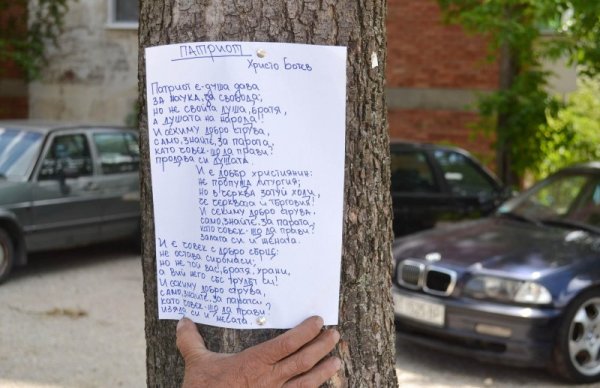 ПАТРИОТ
Христо Ботев
Патриот е - душа дава
за наука, за свобода;
но не свойта душа, братя,
а душата на народа!!
И секиму добро струва,
само, знайте, за парата,
като човек - що да прави?
продава си душата.
И е добър християнин:
не пропуща литургия;
но в черква затуй ходи,
че черквата е търговия!
И секиму добро струва,
само, знайте, за парата,
като човек - що да прави?
залага си и жената.
И е човек с добро сърце:
не оставя сиромаси;
но не той вас, братя, храни,
а вий него със трудът си!
И секиму добро струва,
само, знайте, за парата си
като човек - що да прави?
изяла си и месата.